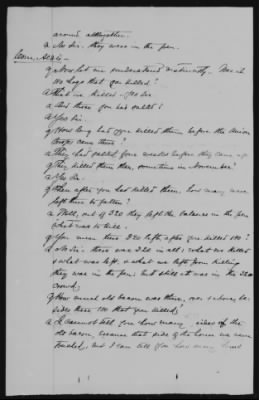 around altogether.
a No Sir. they were in the pen.
Com. Ald;s -
q Now let me understand distinctly. Was it
100 hogs that you killed?
a That we killed. Yes Sir.
q And those you had salted?
a Yes Sir.
q How long had you killed them before the Union
troops came there?
a They had salted four weeks before they came up
q They killed them then, sometime in November?
a Yes Sir.
q Then after you had killed them, how many were
left there to fatten?
a Well, out of 320 they left the balance in the pen
what was to kill.
q You mean there 320 left, after you killed 100?
a No Sir; there was 320 in all; what we killed
& what was left, & what we left from killing
they was in the pen; but still it was in the 320
crowd;
q How much old bacon was there, over & above, be-
sides these 100 that you killed;
a I cannot tell you how many sides of the
old bacon, because that side of the house we never
touched; but I can tell you how many